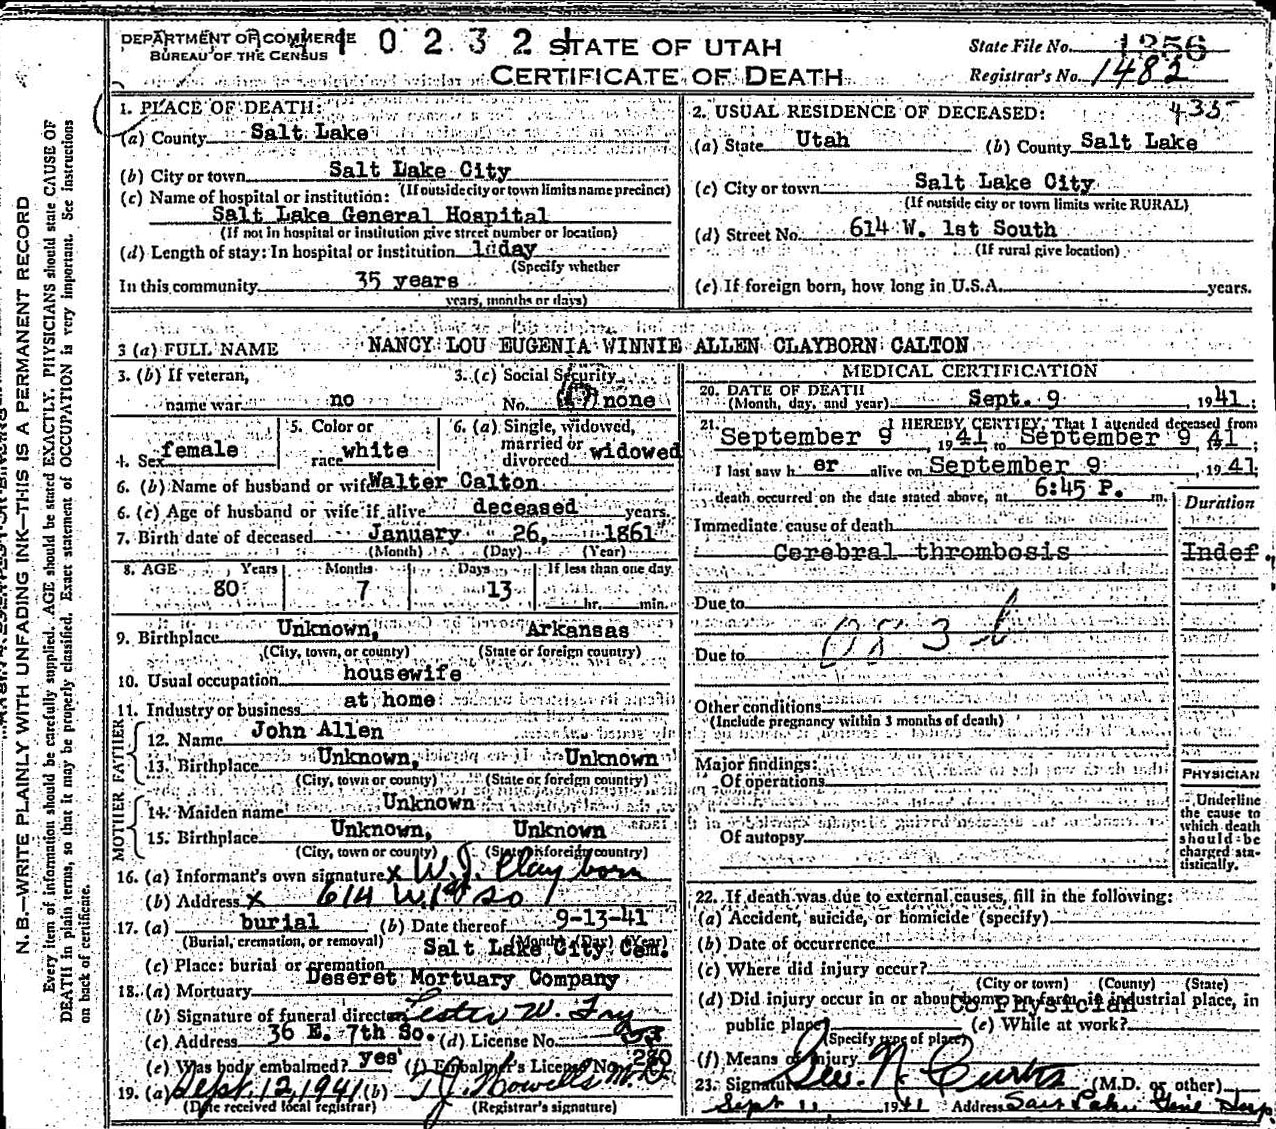 DEPARTMENT OF COMMERCE
BUREAU OF THE CENSUS
10232
STATE OF UTAH
CERTIFICATE OF DEATH
State File No. 1356
Registrar's No. 1482
435
1. PLACE OF DEATH:
(a) County Salt Lake
(b) City or town Salt Lake City
(If outside city or town limits name precinct)
(c) Name of hospital or institution:
Salt Lake General Hospital
(If not in hospital or institution give street number or location)
(d) Length of stay: In hospital or institution 1 day
(Specify whether
In this community 35 years
years, months or days)
2. USUAL RESIDENCE OF DECEASED:
(a) State Utah (b) County Salt Lake
(c) City or town Salt Lake City
(If outside city or town limits write RURAL)
(d) Street No. 614 W. 1st South
(If rural give location)
(e) If foreign born, how long in U.S.A. years.
3 (a) FULL NAME NANCY LOU EUGENIA WINNIE ALLEN CLAYBORN CALTON
3. (b) If veteran,
name war no
3. (c) Social Security
No. none
4. Sex female
5. Color or
race white
6. (a) Single, widowed,
married or
divorced widowed
6. (b) Name of husband or wife Walter Calton
6. (c) Age of husband or wife if alive deceased years.
7. Birth date of deceased January 26, 1861
(Month) (Day) (Year)
8. AGE Years Months Days If less than one day
80 7 13 hr. min.
9. Birthplace Unknown, Arkansas
(City, town, or county) (State or foreign country)
10. Usual occupation housewife
11. Industry or business at home
FATHER
12. Name John Allen
13. Birthplace Unknown, Unknown
(City, town or county) (State or foreign country)
MOTHER
14. Maiden name Unknown
15. Birthplace Unknown, Unknown
(City, town or county) (State or foreign country)
16. (a) Informant's own signature x W. J. Clayborn
(b) Address x 614 W. 1st So
17. (a) burial (b) Date thereof 9-13-41
(Burial, cremation, or removal) (Month) (Day) (Year)
(c) Place: burial or cremation Salt Lake City Cem.
18. (a) Mortuary Deseret Mortuary Company
(b) Signature of funeral director Lester W.
(c) Address 36 E. 7th So. (d) License No.
(e) Was body embalmed? yes (f) Embalmer's License No. 280
19. (a) Sept. 12, 1941 (b) T J Howells M.D.
(Date received local registrar) (Registrar's signature)
MEDICAL CERTIFICATION
20. DATE OF DEATH
(Month, day, and year) Sept. 9, 1941;
21. I HEREBY CERTIFY, That I attended deceased from
September 9, 1941 to September 9, 41;
I last saw h er alive on September 9, 1941
death occurred on the date stated above, at 6:45 P. m.
Duration
Immediate cause of death
Cerebral thrombosis Indef.
Due to
083 b
Due to
Other conditions
(Include pregnancy within 3 months of death)
Major findings:
Of operations
Of autopsy
PHYSICIAN
Underline
the cause to
which death
should be
charged sta-
tistically.
22. If death was due to external causes, fill in the following:
(a) Accident, suicide, or homicide (specify)
(b) Date of occurrence
(c) Where did injury occur?
(City or town) (County) (State)
(d) Did injury occur in or about home, on farm, in industrial place, in
Co Physician
public place? (e) While at work?
(Specify type of place)
(f) Means of injury
23. Signature Geo. N. Curtis (M.D. or other)
Sept 11, 1941 Address Salt Lake Gene Hosp
N. B.—WRITE PLAINLY WITH UNFADING INK—THIS IS A PERMANENT RECORD
Every item of information should be carefully supplied. AGE should be stated EXACTLY. PHYSICIANS should state CAUSE OF
DEATH in plain terms, so that it may be properly classified. Exact statement of OCCUPATION is very important. See Instructions
on back of certificate.